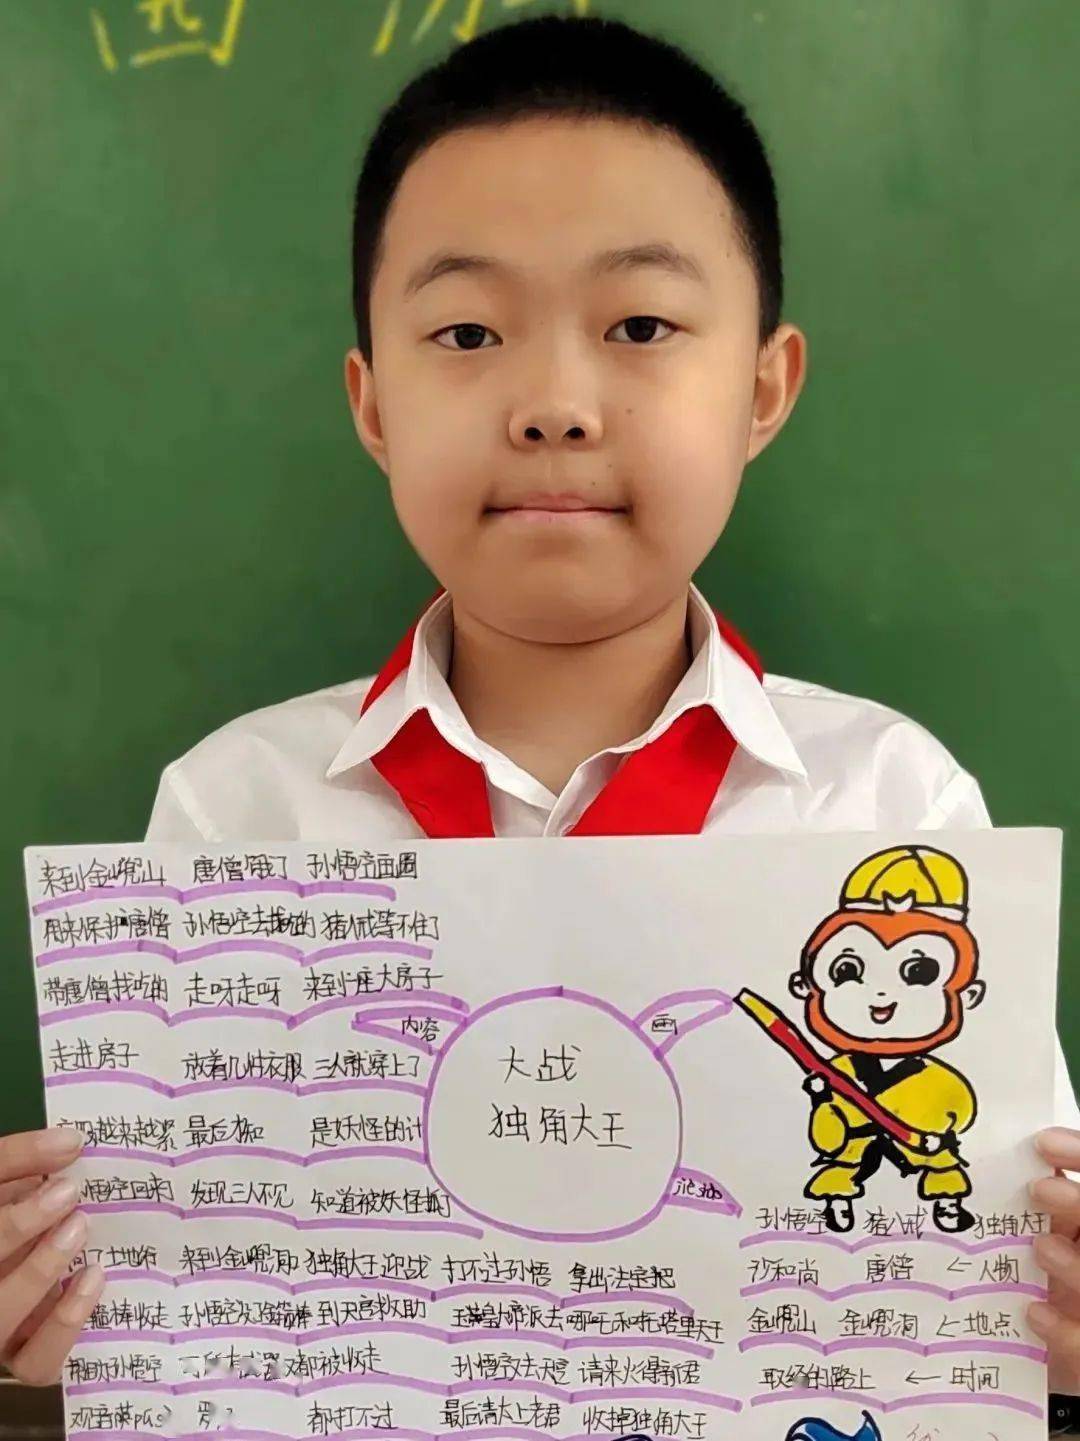 来到金兜山 唐僧饿了 孙悟空画圈
用来保护唐僧 孙悟空去找吃的 猪八戒等不住了
带唐僧找吃的 走呀走呀 来到一座大房子
内容
画
走进房子 放着几件衣服 三人就穿上了
大战
独角大王
越来越紧 最后才知 是妖怪的计
悟空回来 发现三人不见 知道被妖怪抓了
孙悟空 猪八戒 独角大王
问了土地爷 来到金兜洞 独角大王迎战 打不过孙悟 拿出法宝把
沙和尚 唐僧 ← 人物
箍棒收走 孙悟空没了金箍棒 到天宫救助 玉皇大帝派去 哪吒和托塔李天王
金兜山 金兜洞 ← 地点
帮助孙悟空 都被收走 孙悟空又去天宫 请来火德星君
取经的路上 ← 时间
观音菩pusa 都打不过 最后请太上老君 收掉独角大王